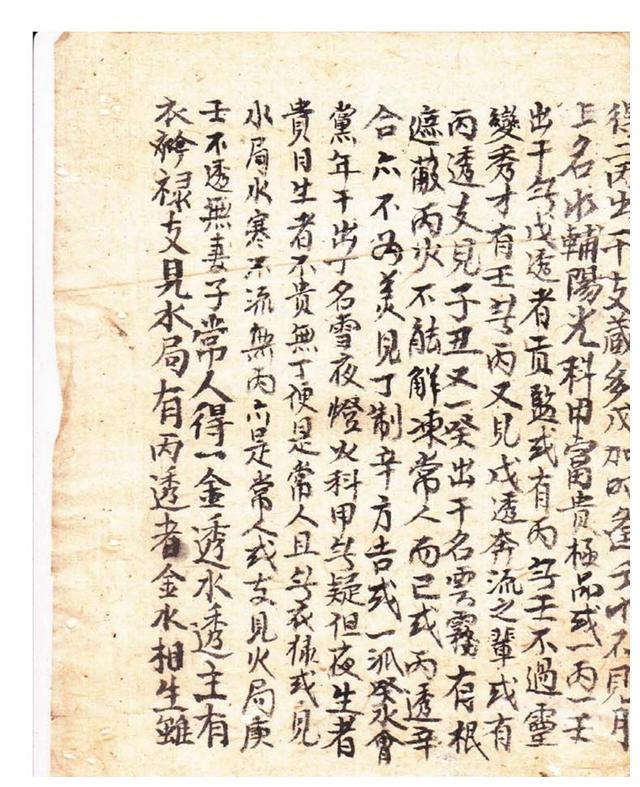 得二丙出干支藏多戊加
上名水輔陽光科甲富貴極品或一丙一壬
出干无戊透者貢監或有丙无壬不過靈
變秀才有壬无丙又見戊透奔流之輩或有
丙透支見子丑又一癸出干名雲霧有根
遮蔽丙火不能解凍常人而已或丙透辛
合亦不為美見丁制辛方吉或一派癸水會
黨年干出丁名雪夜燈火科甲无疑但夜生者
貴日生者不貴無丁便是常人且无衣禄或見
水局水寒不流無丙亦是常人或支見火局庚
壬不透無妻子常人得一金透水透主有
衣衿禄支見水局有丙透者金水相生雖